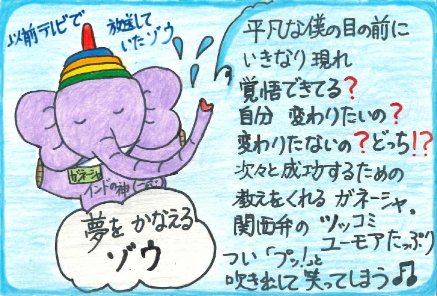 以前テレビで
放送して
いたゾウ
ガネーシャ
インドの神
夢をかなえる
ゾウ
平凡な僕の目の前に
いきなり現れ
覚悟できてる?
自分 変わりたいの?
変わりたないの?どっち!?
次々と成功するための
教えをくれる ガネーシャ。
関西弁の ツッコミ
ユーモアたっぷり
つい「プッ!」と
吹き出して笑ってしまう♫